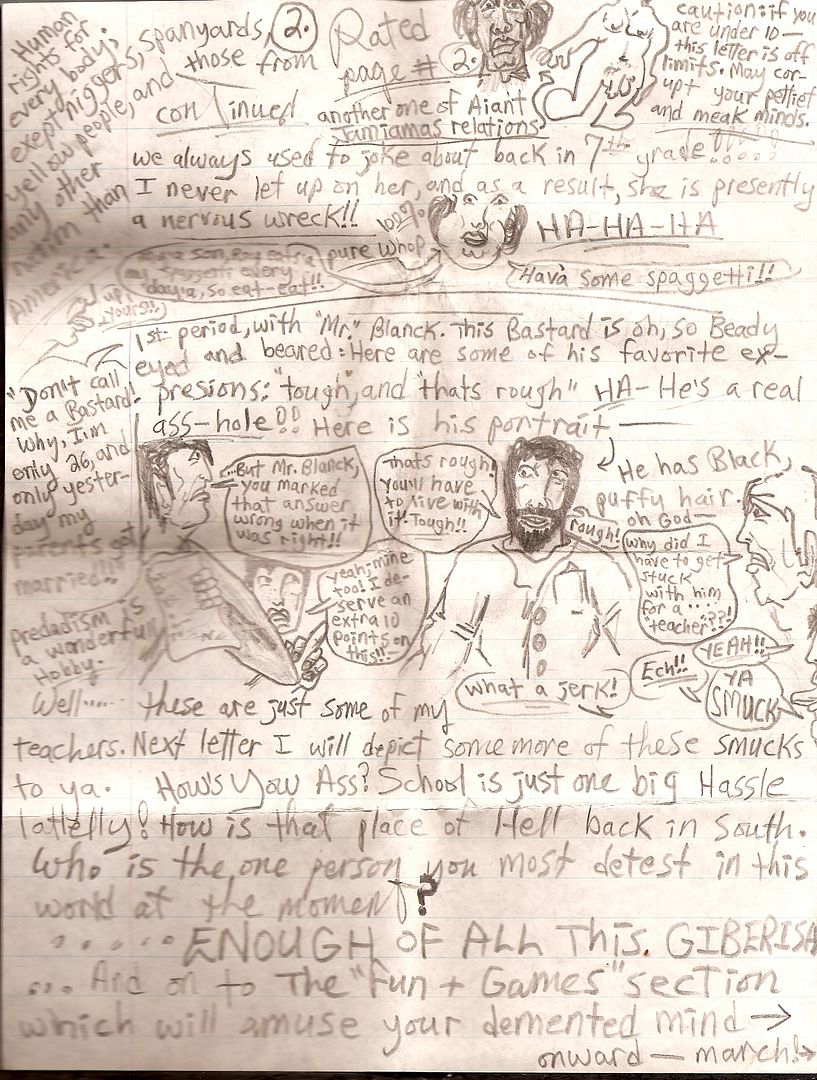 Human
rights for
every body;
exept niggers, spanyards,
yellow people, and those from
any other
nation than
Americ
2.
Rated
page # 2.
continued
another one of Aiant
Jamiamas relations
caution: if you
are under 10 —
this letter is off
limits. May cor-
upt your pettiet
and meak minds.
we always used to joke about back in 7th grade!!!!
I never let up on her, and as a result, she is presently
a nervous wreck!! HA-HA-HA
100%
pure Whop
son, Roy eatsa
my spaggetti every
dayia, so eat-eat!!
Hava some spaggetti!!
up
yours!!
1st period, with "Mr." Blanck. This Bastard is oh, so Beady
eyed and beared: Here are some of his favorite ex-
presions: "tough, and "thats rough" HA- He's a real
ass-hole!! Here is his portrait —
"Don't call
me a Bastard!
Why, I'm
only 26, and
only yester-
day my
parents got
married!!"
predadism is
a wonderfull
Hobby.
...But Mr. Blanck,
you marked
that answer
wrong when it
was right!!
Thats rough!
You'll have
to live with
it! Tough!!
rough!
He has Black,
puffy hair.
oh God —
Why did I
have to get
stuck
with him
for a ....
teacher??!
yeah; mine
too! I de-
serve an
extra 10
points on
this!! —
What a jerk!
Ech!!
YEAH!!
YA
SMUCK
Well...... these are just some of my
teachers. Next letter I will depict some more of these smucks
to ya. How's Yow Ass? School is just one big Hassle
lattelly! How is that place of Hell back in South.
Who is the one person you most detest in this
world at the moment?
...... ENOUGH OF ALL THIS GIBERISH
... And on to The "fun + Games" section
which will amuse your demented mind →
onward — march! →